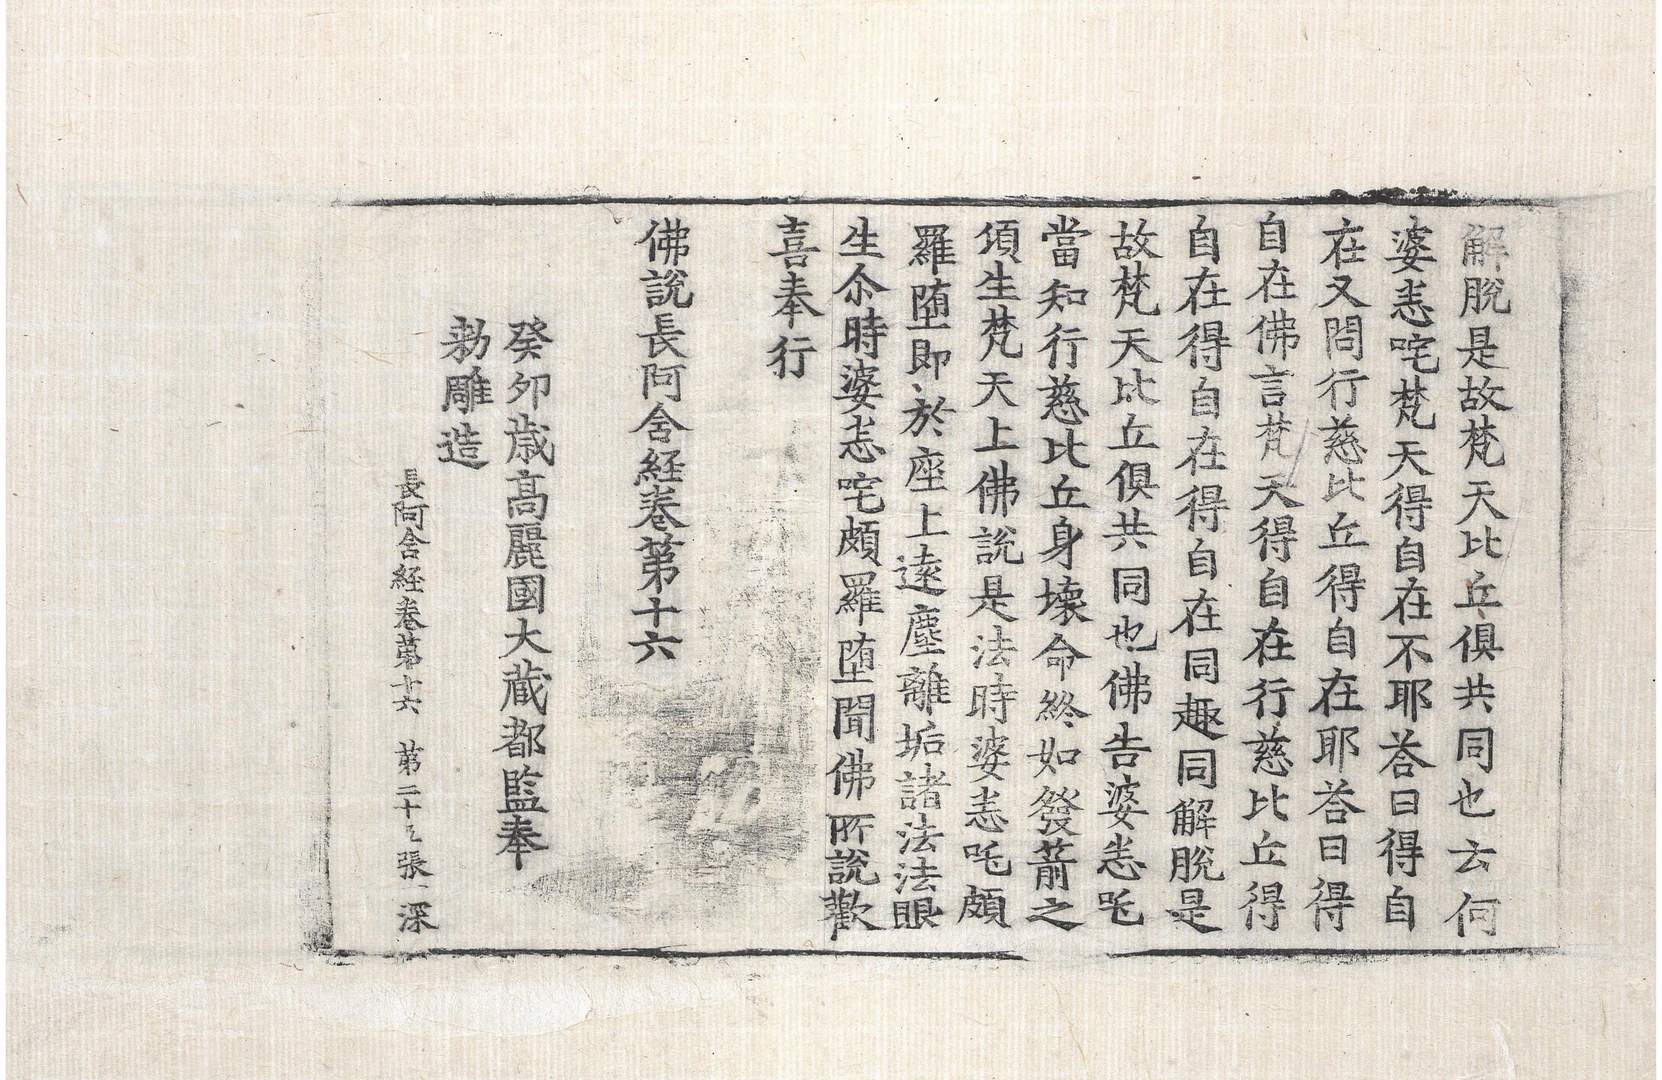 解脫是故梵天比丘俱共同也云何
婆悉咤梵天得自在不耶荅曰得自
在又問行慈比丘得自在耶荅曰得
自在佛言梵天得自在行慈比丘得
自在得自在得自在同趣同解脫是
故梵天比丘俱共同也佛告婆悉咤
當知行慈比丘身壞命終如發箭之
頃生梵天上佛說是法時婆悉咤頗
羅墮即於座上遠塵離垢諸法法眼
生尒時婆悉咤頗羅墮聞佛所說歡
喜奉行
佛說長阿含経卷第十六
癸卯歲高麗國大藏都監奉
勑雕造
長阿含経卷第十六 第二十張 深